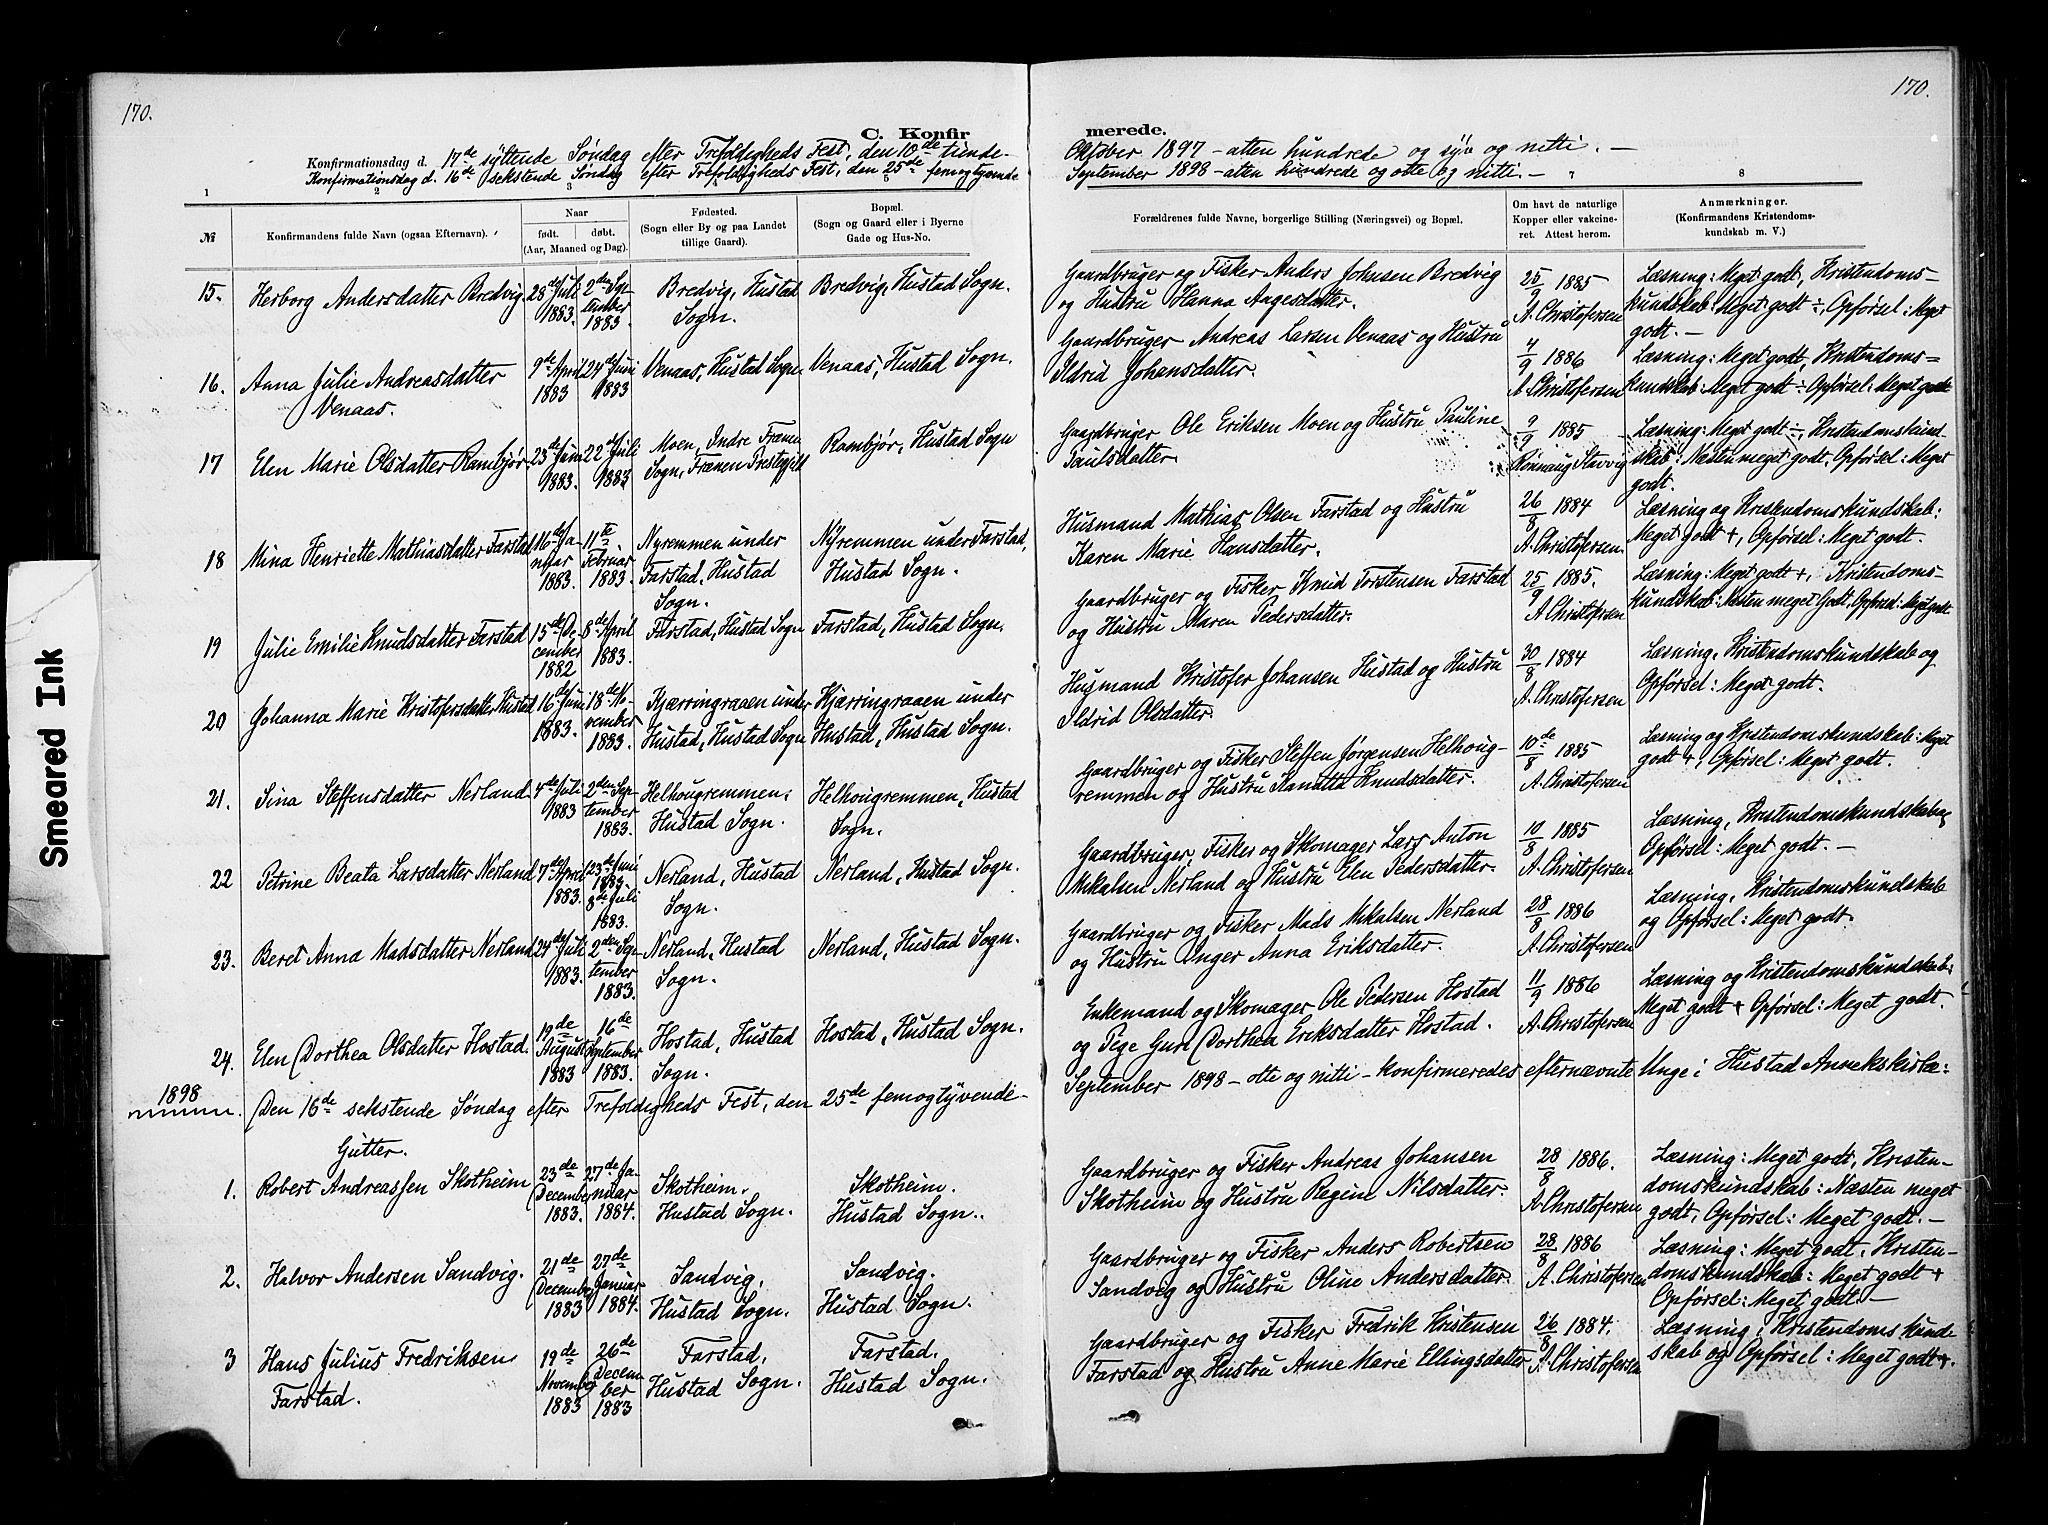 170.
170.
C. Konfir
merede.
Konfirmationsdag d. 17de syttende Søndag efter Trefoldigheds Fest, den 10de tiende
Oktober 1897 - atten hundrede og syv og nitti. -
Konfirmationsdag d. 16de sekstende Søndag efter Trefoldigheds Fest, den 25de femogtyvende
September 1898 - atten hundrede og otte og nitti. -
1 2 3 5 7 8
№
Konfirmandens fulde Navn (ogsaa Efternavn).
Naar
født. døbt.
(Aar, Maaned og Dag).
Fødested.
(Sogn eller By og paa Landet
tillige Gaard).
Bopæl.
(Sogn og Gaard eller i Byerne
Gade og Hus-No.
Forældrenes fulde Navne, borgerlige Stilling (Næringsvei) og Bopæl.
Om havt de naturlige
Kopper eller vakcine-
ret. Attest herom.
Anmærkninger.
(Konfirmandens Kristendoms-
kundskab m. V.)
15. Herborg Andersdatter Bredvig
28de Juli
1883.
2den Sep-
tember
1883.
Bredvig, Hustad
Sogn.
Bredvig, Hustad Sogn.
Gaardbruger og Fisker Anders Johnsen Bredvig
og Hustru Hanna Aagesdatter.
25/9 1885
A. Christofersen
Læsning: Meget godt, Kristendoms-
kundskab: Meget godt ÷, Opførsel: Meget
godt. -
16. Anna Julie Andreasdatter
Venaas.
9de April
1883
24de Juni
1883
Venaas, Hustad Sogn
Venaas, Hustad Sogn.
Gaardbruger Andreas Larsen Venaas og Hustru
Ildrid Johansdatter.
4/9 1886
A. Christofersen
Læsning: Meget godt, Kristendoms-
kundskab: Meget godt ÷ Opførsel: Meget godt
17 Elen Marie Olsdatter Rambjør
23de Juni
1883.
22de Juli
1883
Moen, Indre Frænen
Sogn, Frænen Prestegjeld
Rambjør, Hustad Sogn
Gaardbruger Ole Eriksen Moen og Hustru Pauline
Paulsdatter
9/9 1885
Rønnaug Stavvig
Læsning: Meget godt ÷, Kristendomskund-
skab: Næsten meget godt, Opførsel: Meget
godt.
18 Mina Henriette Mathiasdatter Farstad
16de Ja-
nuar
1883.
11te
Februar
1883.
Nyremmen under
Farstad, Hustad
Sogn.
Nyremmen under Farstad,
Hustad Sogn.
Husmand Mathias Olsen Farstad og Hustru
Karen Marie Hansdatter.
26/8 1884
A. Christofersen.
Læsning og Kristendomskundskab:
Meget godt +, Opførsel: Meget godt.
19 Julie Emilie Knudsdatter Farstad
15de De-
cember
1882
8de April
1883.
Farstad, Hustad Sogn
Farstad, Hustad Sogn.
Gaardbruger og Fisker Knud Torstensen Farstad
og Hustru Maren Pedersdatter.
25/9 1885.
A. Christofersen
Læsning: Meget godt +, Kristendoms-
kundskab: Næsten meget Godt, Opførsel: Meget godt
20 Johanna Marie Kristofersdatter Hustad
16de Juni
1883.
18de No-
vember
1883.
Kjærringraaen under
Hustad, Hustad Sogn
Kjærringraaen under
Hustad, Hustad Sogn.
Husmand Kristofer Johansen Hustad og Hustru
Ildrid Olsdatter.
30/8 1884
A. Christofersen
Læsning, Kristendomskundskab og
Opførsel: Meget godt.
21. Sina Steffensdatter Nerland
4de Juli
1883
2den Sep-
tember
1883.
Helhougremmen,
Hustad Sogn.
Helhougremmen, Hustad
Sogn.
Gaardbruger og Fisker Steffen Jørgensen Helhoug-
remmen og Hustru Knudsdatter.
10de/8 1885
A. Christofersen
Læsning og Kristendomskundskab: Meget
godt +, Opførsel: Meget godt.
22 Petrine Beata Larsdatter Nerland
7de April
1883.
23de Juni
1883
8de Juli
1883.
Nerland, Hustad
Sogn.
Nerland, Hustad Sogn.
Gaardbruger, Fisker og Skomager Lars Anton
Mikalsen Nerland og Hustru Elen Pedersdatter.
10/8 1885
A. Christofersen
Læsning, Kristendomskundskab og
Opførsel: Meget godt. -
23. Beret Anna Madsdatter Nerland
24de Juli
1883.
2den Sep-
tember
1883.
Nerland, Hustad
Sogn.
Nerland, Hustad Sogn.
Gaardbruger og Fisker Mads Mikalsen Nerland
og Hustru Inger Anna Eriksdatter.
28/8 1886
A. Christofersen
Læsning, Kristendomskundskab
og Opførsel: Meget godt.
24. Elen Dorthea Olsdatter Hostad.
19de
August
1883
16de
September
1883.
Hostad, Hustad
Sogn.
Hostad, Hustad Sogn.
Enkemand og Skomager Ole Pedersen Hostad
og Pige Guri Dorthea Eriksdatter Hostad.
11/9 1886
A. Christofersen
Læsning og Kristendomskundskab:
Meget godt + Opførsel: Meget godt.
1898
Den 16de sekstende Søndag efter Trefoldigheds Fest, den 25de femogtyvende-
September 1898 - otte og nitti - konfirmeredes efternævnte Unge i Hustad Annekskirke:
Gutter.
1. Robert Andreassen Skotheim
23de
December
1883.
27de Ja-
nuar
1884.
Skotheim.
Hustad Sogn.
Skotheim.
Hustad Sogn.
Gaardbruger og Fisker Andreas Johansen
Skotheim og Hustru Regine Nilsdatter.
28/8 1886.
A. Christofersen
Læsning: Meget godt, Kristen-
domskundskab: Næsten meget
godt, Opførsel: Meget godt. -
2. Halvor Andersen Sandvig.
21de
December
1883
27de
Januar
1884.
Sandvig,
Hustad Sogn.
Sandvig.
Hustad Sogn.
Gaardbruger og Fisker Anders Robertsen
Sandvig og Hustru Oline Andersdatter.
28/8 1886
A. Christofersen
Læsning: Meget godt, Kristen-
domskundskab: Meget godt +
Opførsel: Meget godt. -
3 Hans Julius Fredriksen
Farstad.
19de
November
1883
26de
Decem-
ber
1883
Farstad,
Hustad Sogn.
Farstad.
Hustad Sogn.
Gaardbruger og Fisker Fredrik Kristensen
Farstad og Hustru Anne Marie Ellingsdatter
26/8 1884.
A. Christofersen
Læsning, Kristendomskund-
skab og Opførsel: Meget godt +.
Smeared Ink